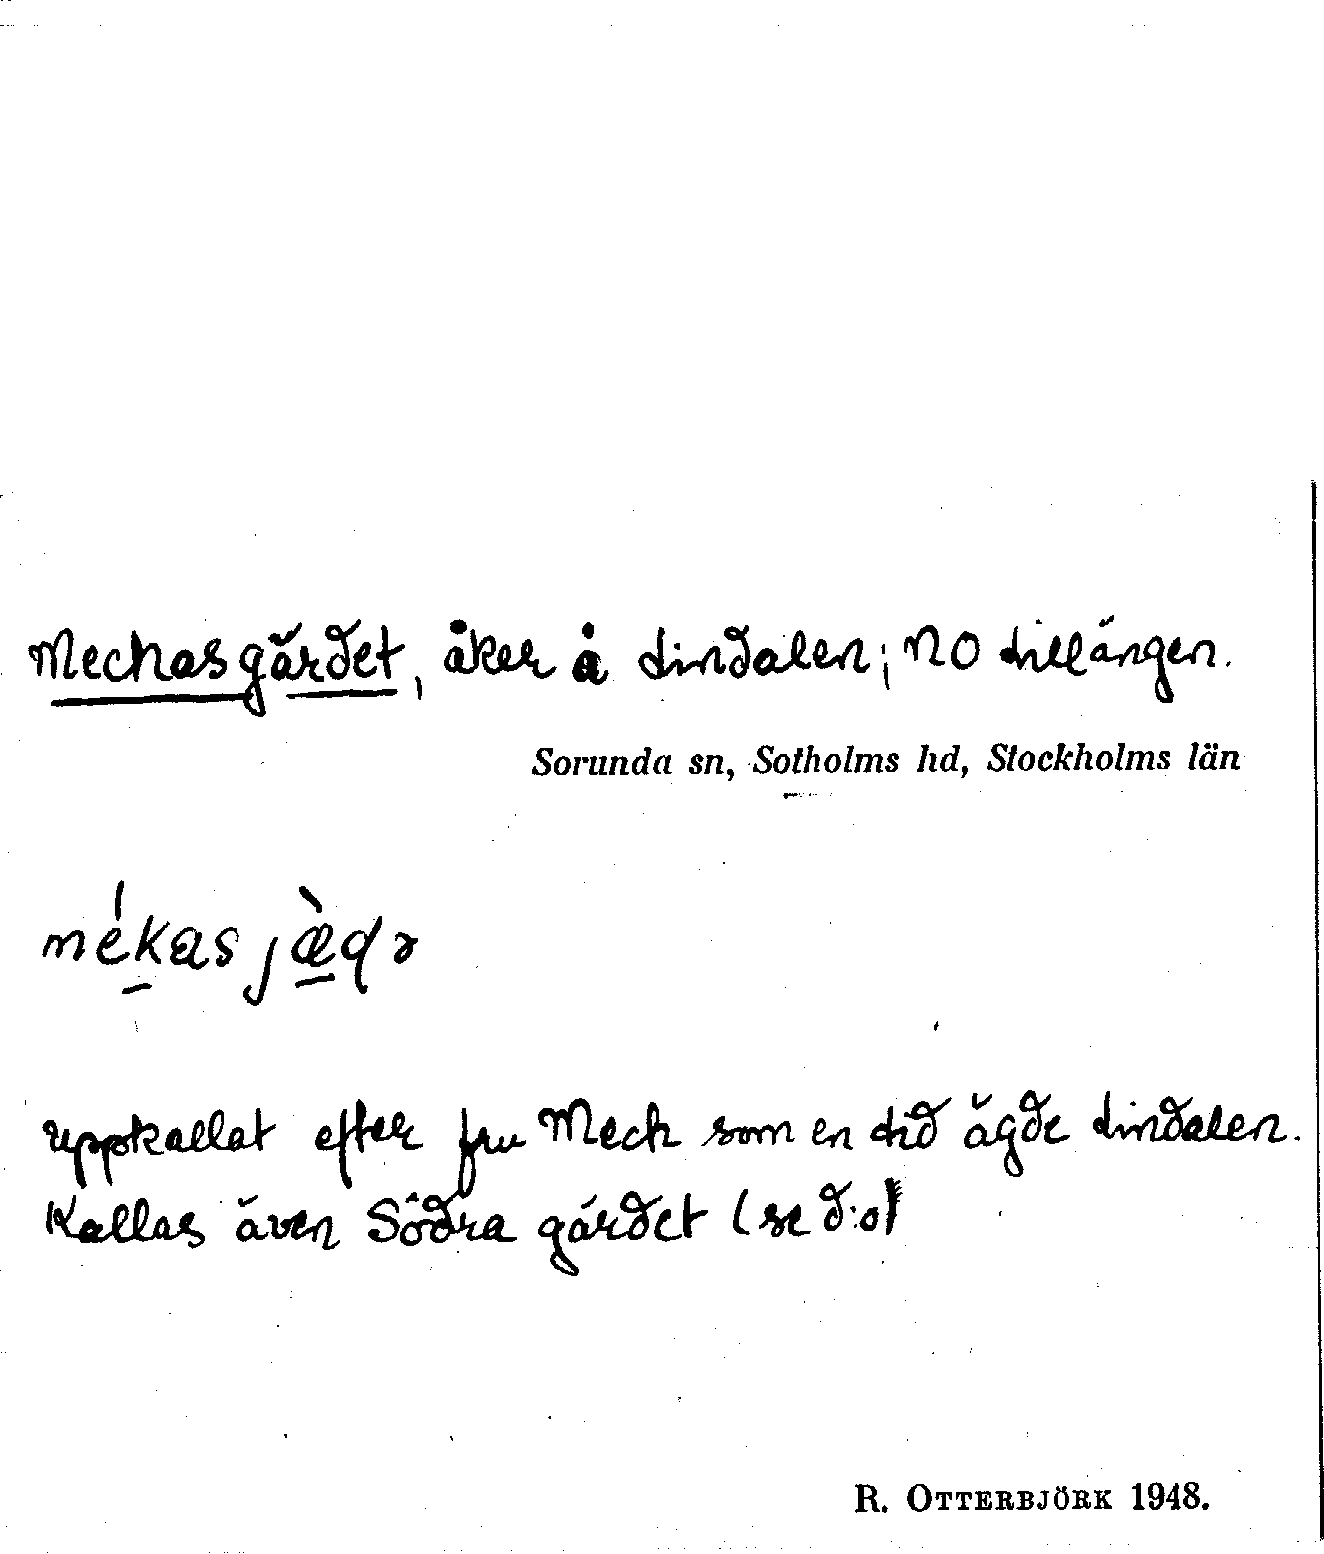 Meckas gärdet, åker å Lindalen; NO Lillängen.
Sorunda sn, Sotholms hd, Stockholms län
mékas jæ̀ɖə
uppkallat efter fru Meck som en tid ägde Lindalen.
Kallas även Södra gärdet (se d:o)
R. OTTERBJÖRK 1948.